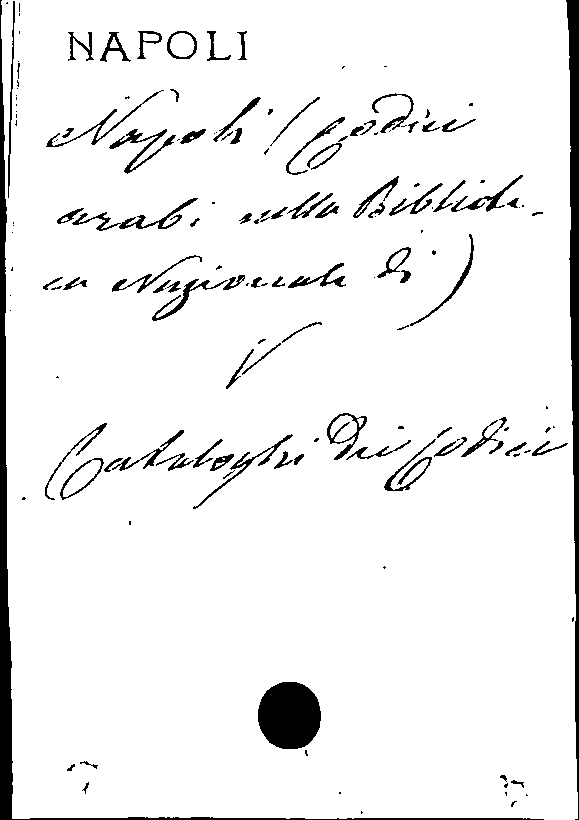 NAPOLI
Napoli (Codici
arabi nella Bibliote-
ca Nazionale di)
V
Cataloghi dei Codici